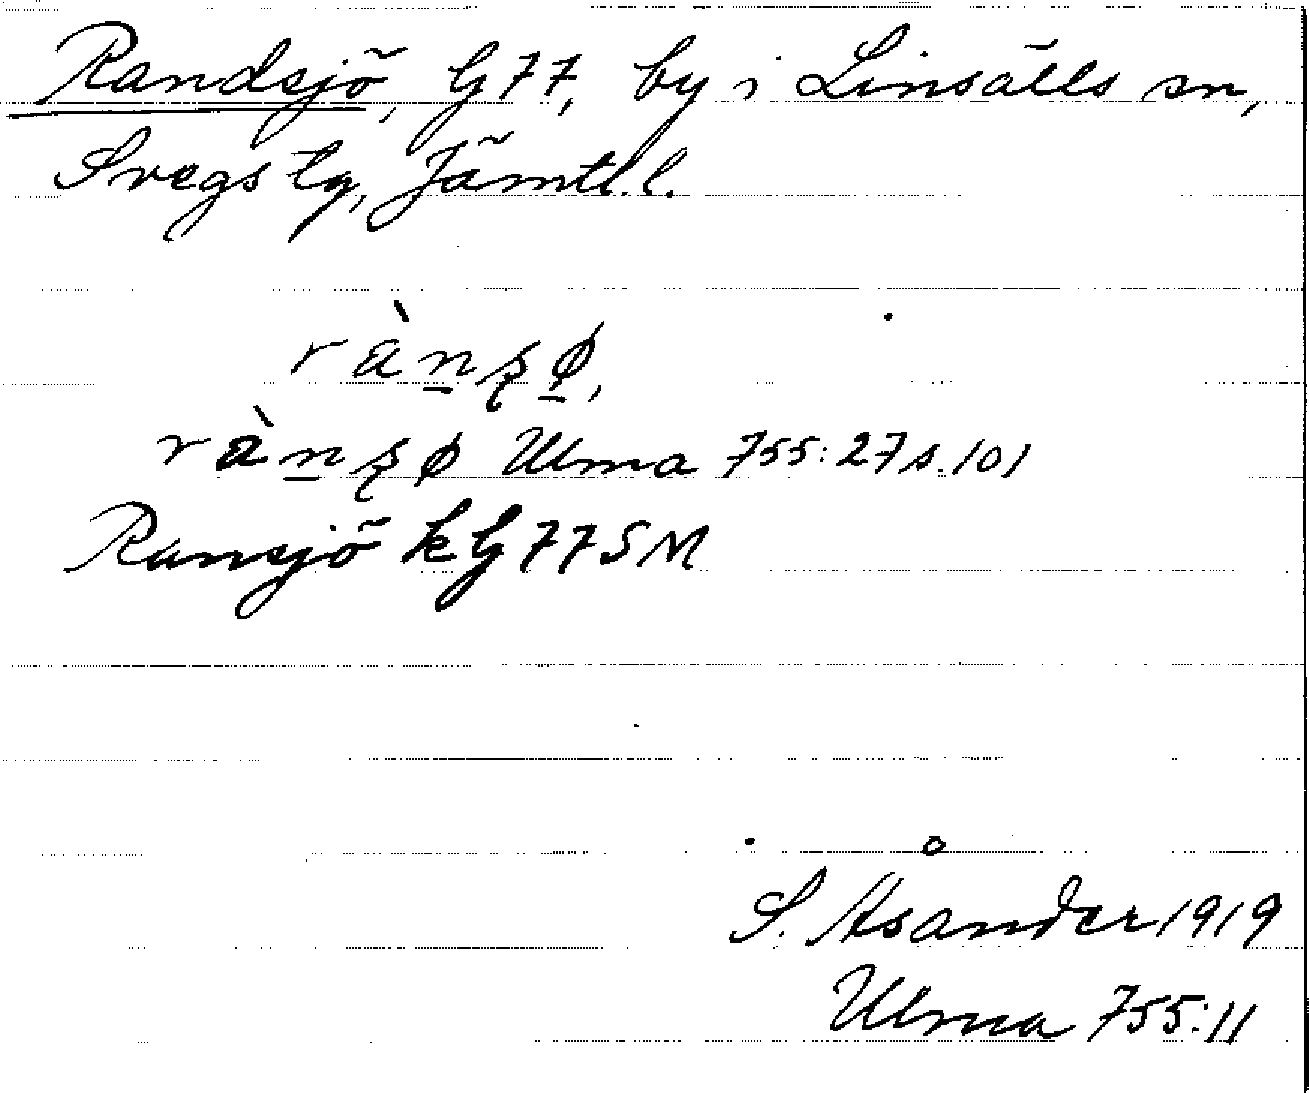 Randsjö, G77, by i Linsälls sn,
Svegs tg, Jämtl.l.
rànʂø,
rànʂø Ulma 755:27 s. 101
Ransjö kG77SM
S. Åsander 1919
Ulma 755:11